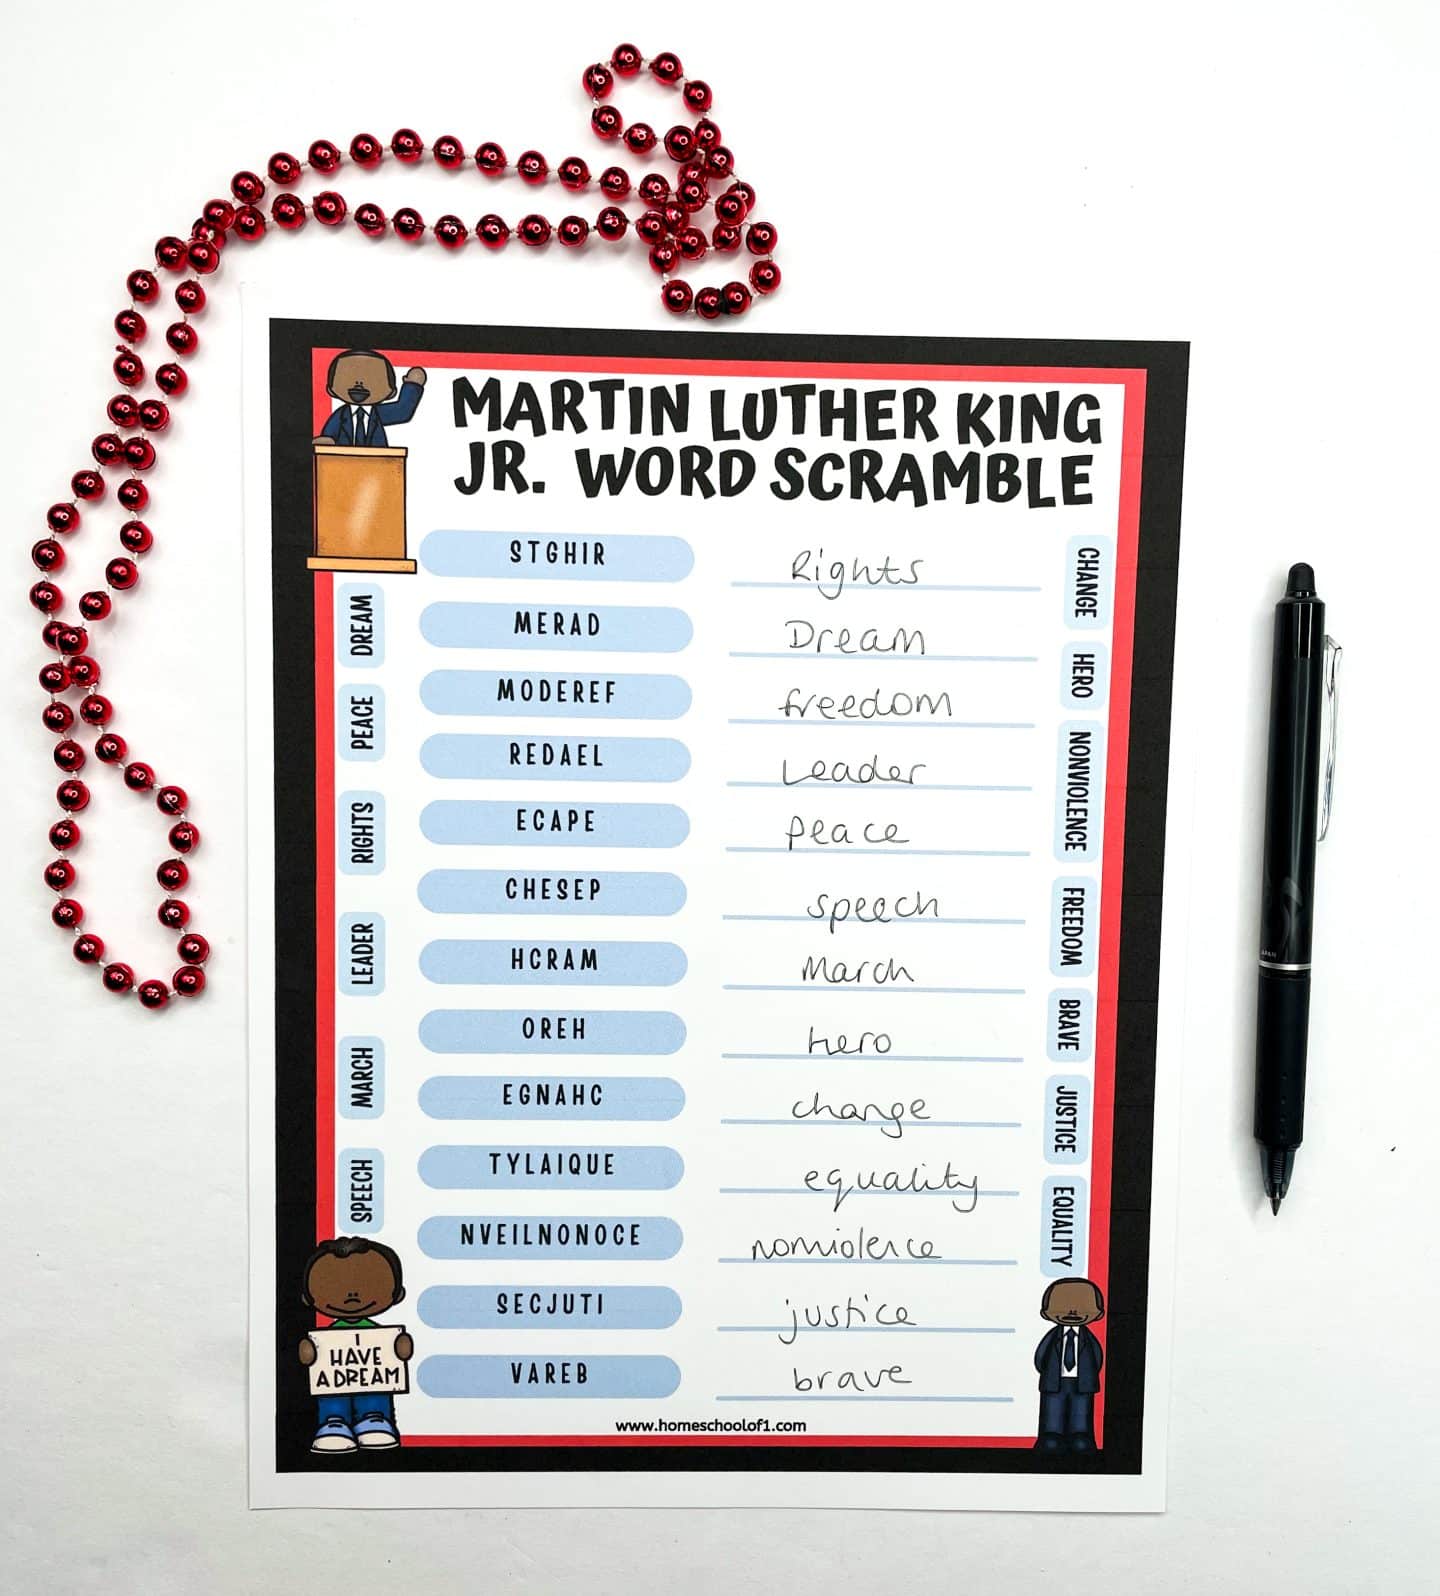 MARTIN LUTHER KING
JR. WORD SCRAMBLE
STGHIR Rights
MERAD Dream
MODEREF freedom
REDAEL Leader
ECAPE Peace
CHESEP speech
HCRAM March
OREH hero
EGNAHC change
TYLAIQUE equality
NVEILNONOCE nonviolence
SECJUTI justice
VAREB brave
DREAM
PEACE
RIGHTS
LEADER
MARCH
SPEECH
CHANGE
HERO
NONVIOLENCE
FREEDOM
BRAVE
JUSTICE
EQUALITY
I
HAVE
A DREAM
www.homeschoolof1.com
JAPAN